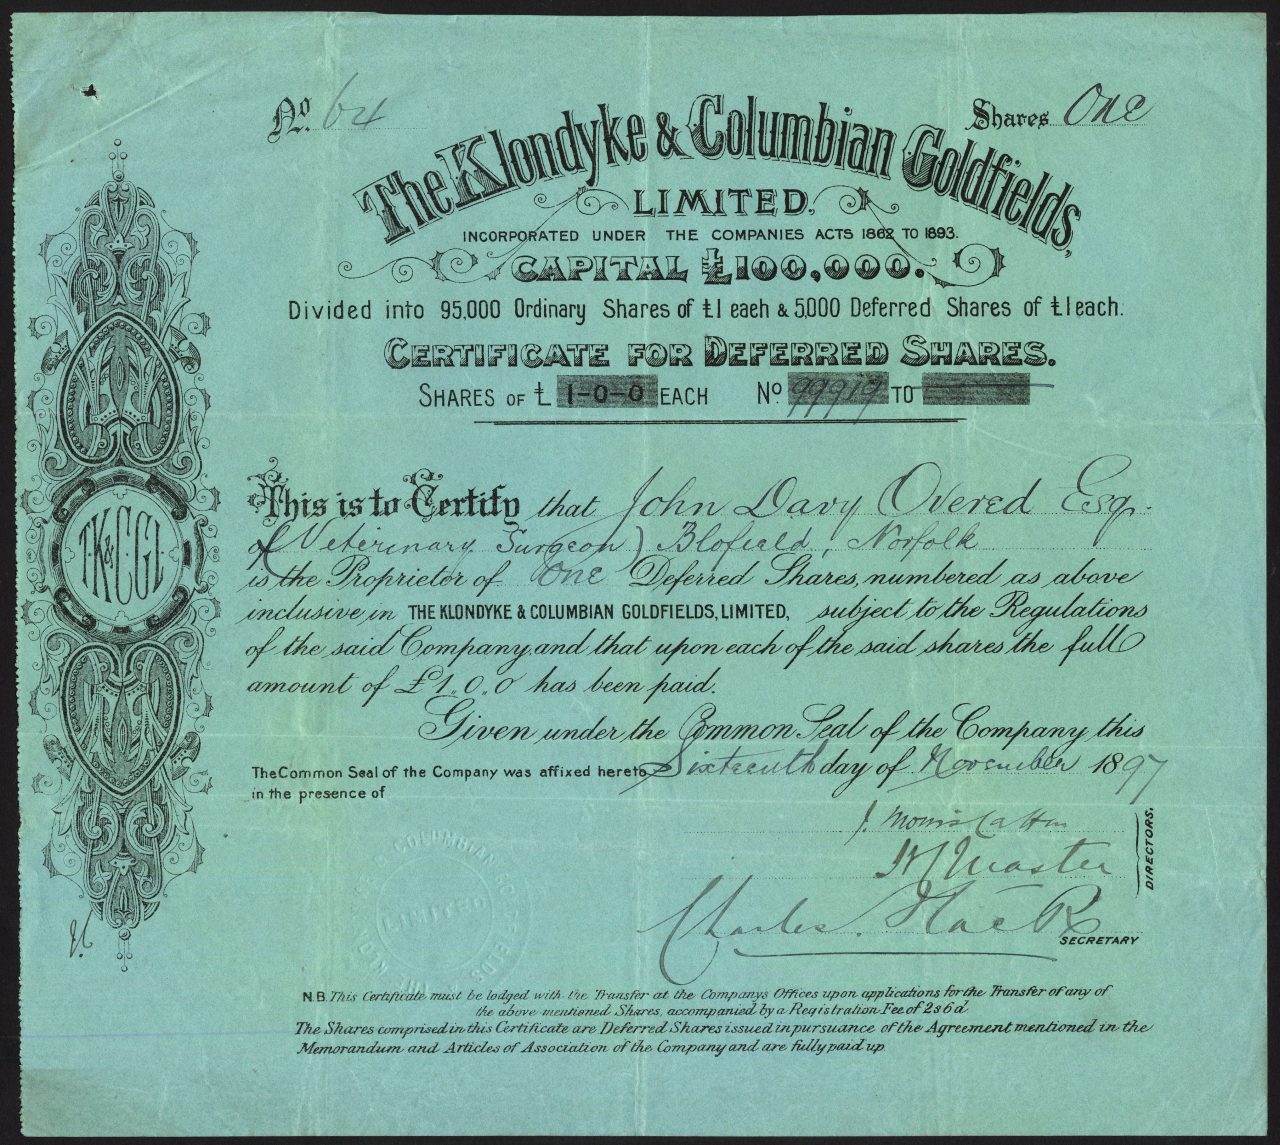 No. 64
Shares One
The Klondyke & Columbian Goldfields,
LIMITED.
INCORPORATED UNDER THE COMPANIES ACTS 1862 TO 1893.
CAPITAL £100,000.
Divided into 95,000 Ordinary Shares of £1 each & 5,000 Deferred Shares of £1 each.
CERTIFICATE FOR DEFERRED SHARES.
SHARES OF £ 1-0-0 EACH No 99919 TO
This is to Certify that John Davy Overed Esq.
of (Veterinary Surgeon) Blofield, Norfolk
is the Proprietor of One Deferred Shares, numbered as above
inclusive in THE KLONDYKE & COLUMBIAN GOLDFIELDS, LIMITED, subject to the Regulations
of the said Company and that upon each of the said shares the full
amount of £1,,0,,0 has been paid.
Given under the Common Seal of the Company this
The Common Seal of the Company was affixed hereto Sixteenth day of November 1897
in the presence of
J. Morris Catton
Master
DIRECTORS.
Charles
SECRETARY
T.K&C.G.L.
LIMITED
N.B. This Certificate must be lodged with the Transfer at the Companys Offices upon applications for the Transfer of any of
the above mentioned Shares, accompanied by a Registration Fee of 2s 6d
The Shares comprised in this Certificate are Deferred Shares issued in pursuance of the Agreement mentioned in the
Memorandum and Articles of Association of the Company and are fully paid up